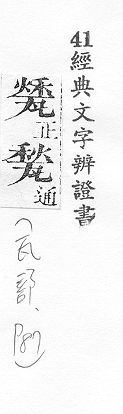 41經典文字辨證書
正
甃通
(瓦部, P87)